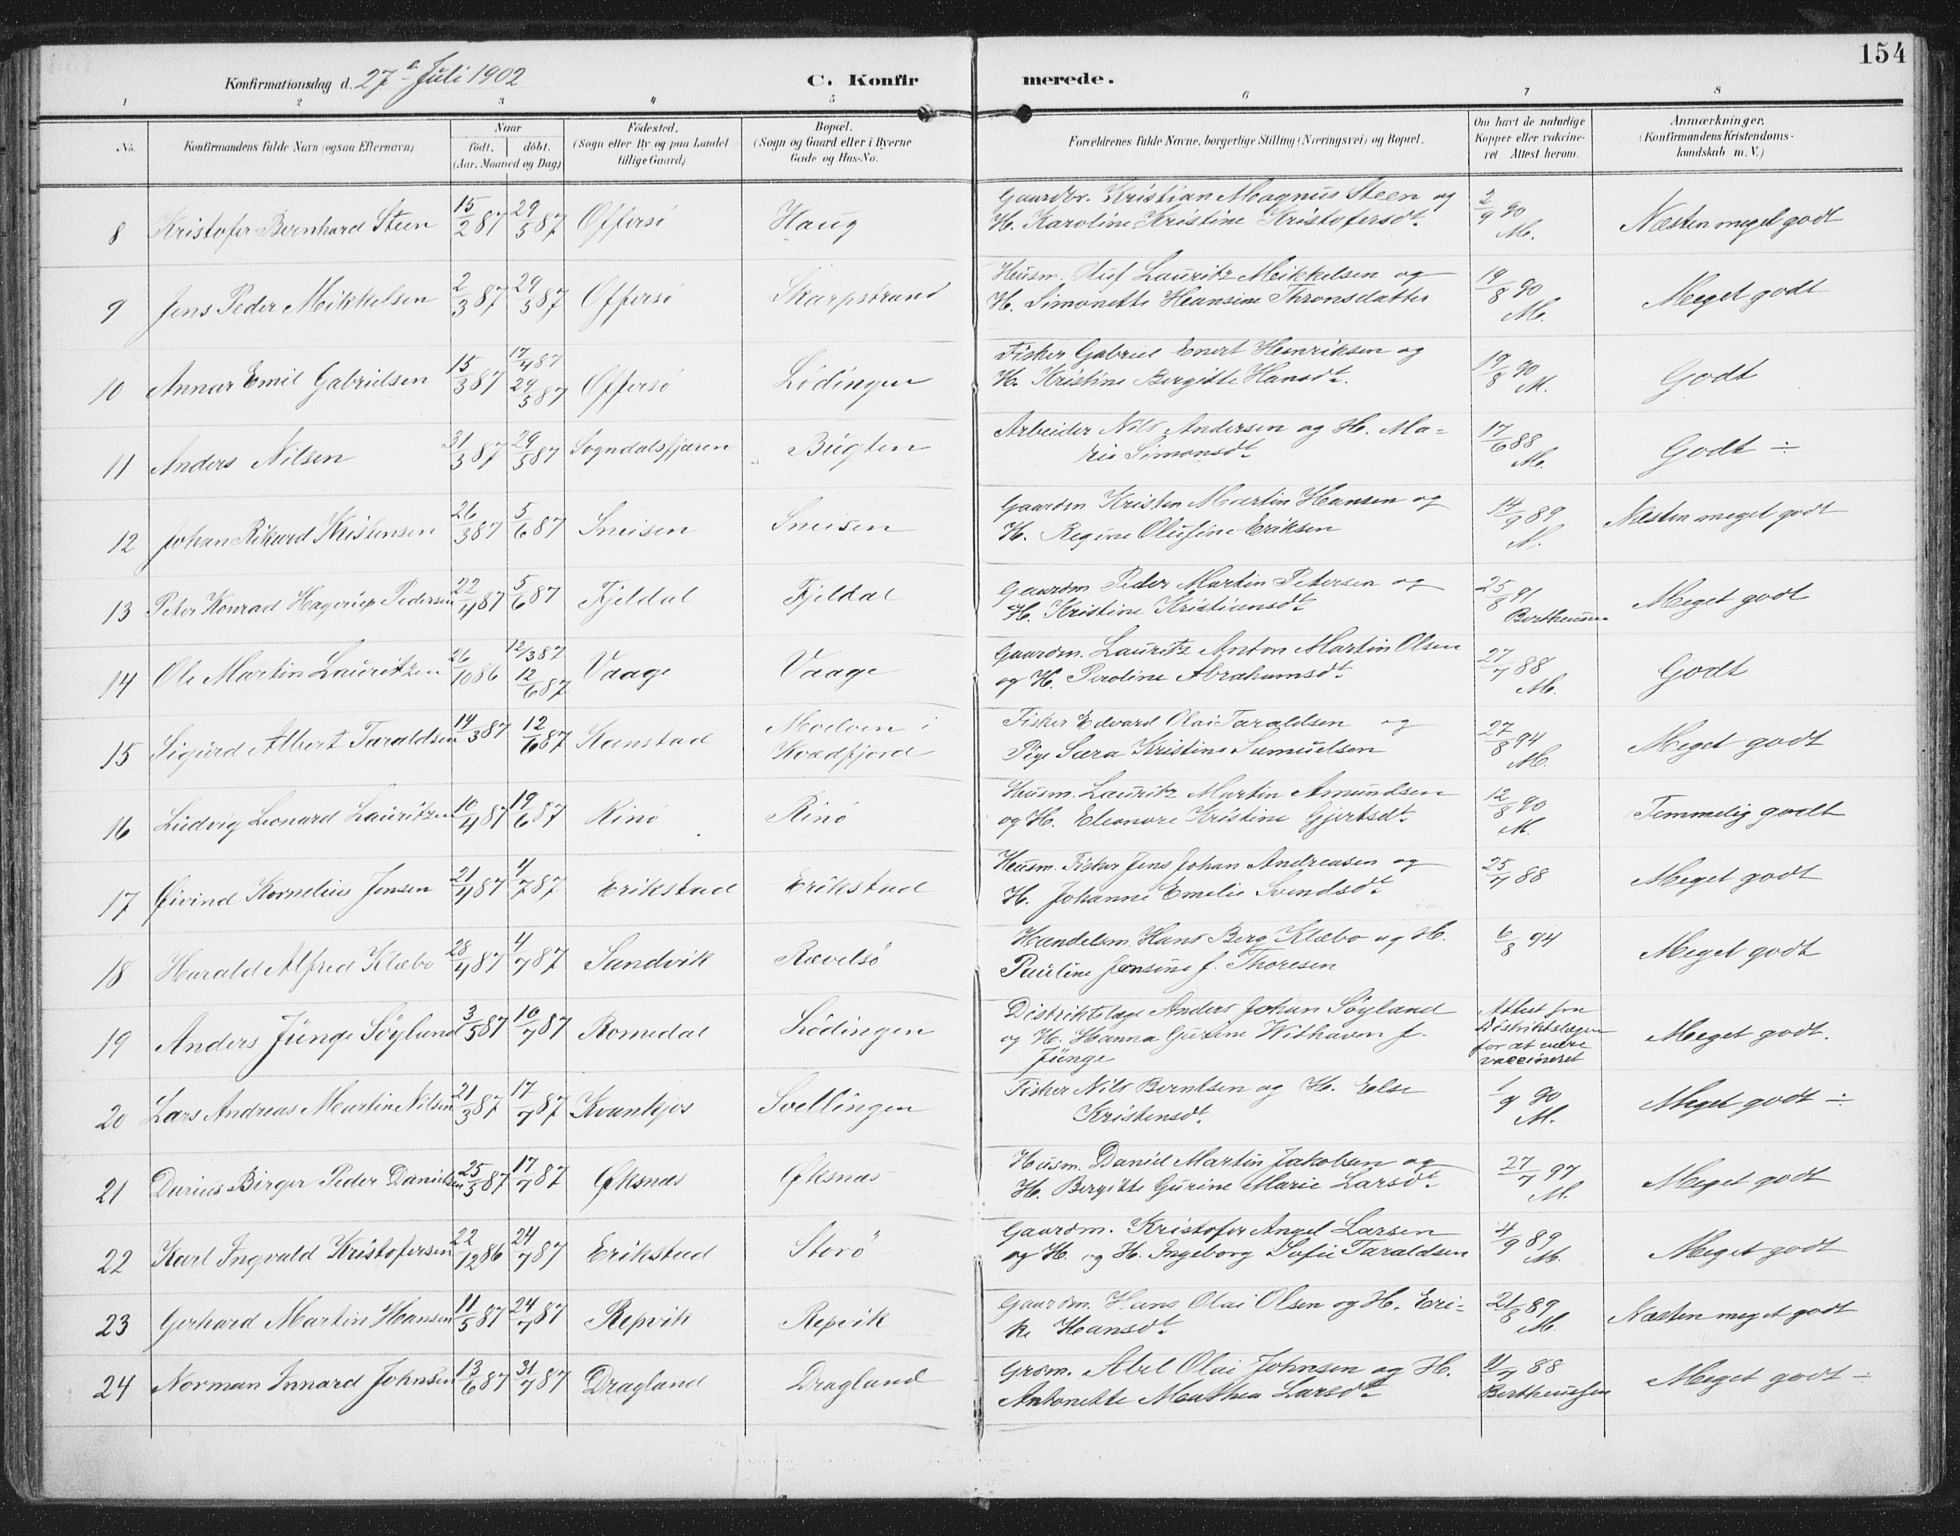 154
Konfirmationsdag d. 27de Juli 1902
C. Konfirmerede.
1 2 3 4 5 6 7 8
No. Konfirmandens fulde Navn (ogsaa Efternavn) Naar født. døbt. (Aar, Maaned og Dag) Fødested. (Sogn eller By og paa Landet tillige Gaard) Bopæl. (Sogn og Gaard eller i Byerne Gade og Hus-No. Forældrenes fulde Navne, borgerlige Stilling (Næringsvei) og Bopæl. Om havt de naturlige Kopper eller vakcineret Attest herom. Anmærkninger. (Konfirmandens Kristendomskundskab m. V.)
8 Kristofer Bernhard Steen 15/2 87 29/5 87 Offersø Haug Gaardbr. Kristian Magnus Steen og
H. Karoline Kristine Kristofersdt. 2/9 90 M. Næsten meget godt
9 Jens Peder Mikkelsen 2/3 87 29/5 87 Offersø Skarpstrand Husm. Oluf Lauritz Mikkelsen og
H. Simonette Hansine Thronsdatter 19/8 90 M. Meget godt
10 Annar Emil Gabrielsen 15/3 87 17/4 87 29/5 87 Offersø Lødingen Fisker Gabriel Enert Henriksen og
H. Kristine Bergitte Hansdt. 19/8 90 M. Godt
11 Anders Nilsen 31/3 87 29/5 87 Sogndalsfjæren Bugten Arbeider Nils Andersen og H. Ma-
rie Simonsdt 17/6 88 M. Godt ÷
12 Johan Rikard Kristensen 26/3 87 5/6 87 Sneisen Sneisen Gaardm Kristen Martin Hansen og
H. Regine Olufine Eriksen 14/9 89 M. Næsten meget godt
13 Peter Konrad Hagerup Pedersen 22/4 87 5/6 87 Fjeldal Fjeldal Gaardm. Peder Martin Petersen og
H. Kristine Kristiansdt 25/8 91 Bertheussen Meget godt
14 Ole Martin Lauritzen 26/10 86 12/3 87 12/6 87 Vaage Vaage Gaardm. Lauritz Anton Martin Olsen
og H. Peroline Abrahamsdt. 27/7 88 M. Godt
15 Sigurd Albert Taraldsen 14/3 87 12/6 87 Kanstad Moelven i Kvædfjord Fisker Edvard Olai Taraldsen og
Pige Sara Kristine Samuelsen 27/8 94 M. Meget godt
16 Ludvig Leonard Lauritzen 10/4 87 19/6 87 Rinø Rinø Husm. Lauritz Martin Amundsen
og H. Eleonore Kristine Gjertsdt. 12/8 90 M. Temmelig godt
17 Øivind Kornelius Jensen 21/4 87 4/7 87 Erikstad Erikstad Husm. Fisker Jens Johan Andreasen og
H. Johanne Emelie Svendsdt 25/7 88 Meget godt
18 Harald Alfred Klæbo 28/4 87 4/7 87 Sandvik Rævelsø Handelsm. Hans Berg Klæbo og H.
Pauline Jensine f. Thoresen 6/8 94 Meget godt
19 Anders Junge Søyland 3/5 87 10/7 87 Romedal Lødingen Distriktslæge Anders Johan Søyland
og H. Hanna Gurine Withaven f.
Junge Attest fra Distriktslægen for at være vaccineret Meget godt.
20 Lars Andreas Martin Nilsen 21/3 87 17/7 87 Kvankjos Svellingen Fisker Nils Berntsen og H. Else
Kristensdt. 1/9 90 M. Meget godt ÷
21 Darius Birger Peder Danielsen 25/5 87 17/7 87 Øksnæs Øksnæs Husm. Daniel Martin Jakobsen og
H. Bergitte Gurine Marie Larsdt. 27/7 97 M. Meget godt
22 Karl Ingvald Kristofersen 22/12 86 24/7 87 Erikstad Storø Gaardm. Kristofer Angel Larsen
og H. og H. Ingeborg Sofie Taraldsen 4/9 89 M. Meget godt
23 Gerhard Martin Hansen 11/5 87 24/7 87 Repvik Repvik Gaardm. Hans Olai Olsen og H. Eri-
ke Hansdt. 21/8 89 M. Næsten meget godt
24 Norman Innard Johnsen 13/6 87 31/7 87 Dragland Dragland Grdm. Abel Olai Johnsen og H.
Antonette Mathea Larsdt 88 Bertheussen Meget godt ÷